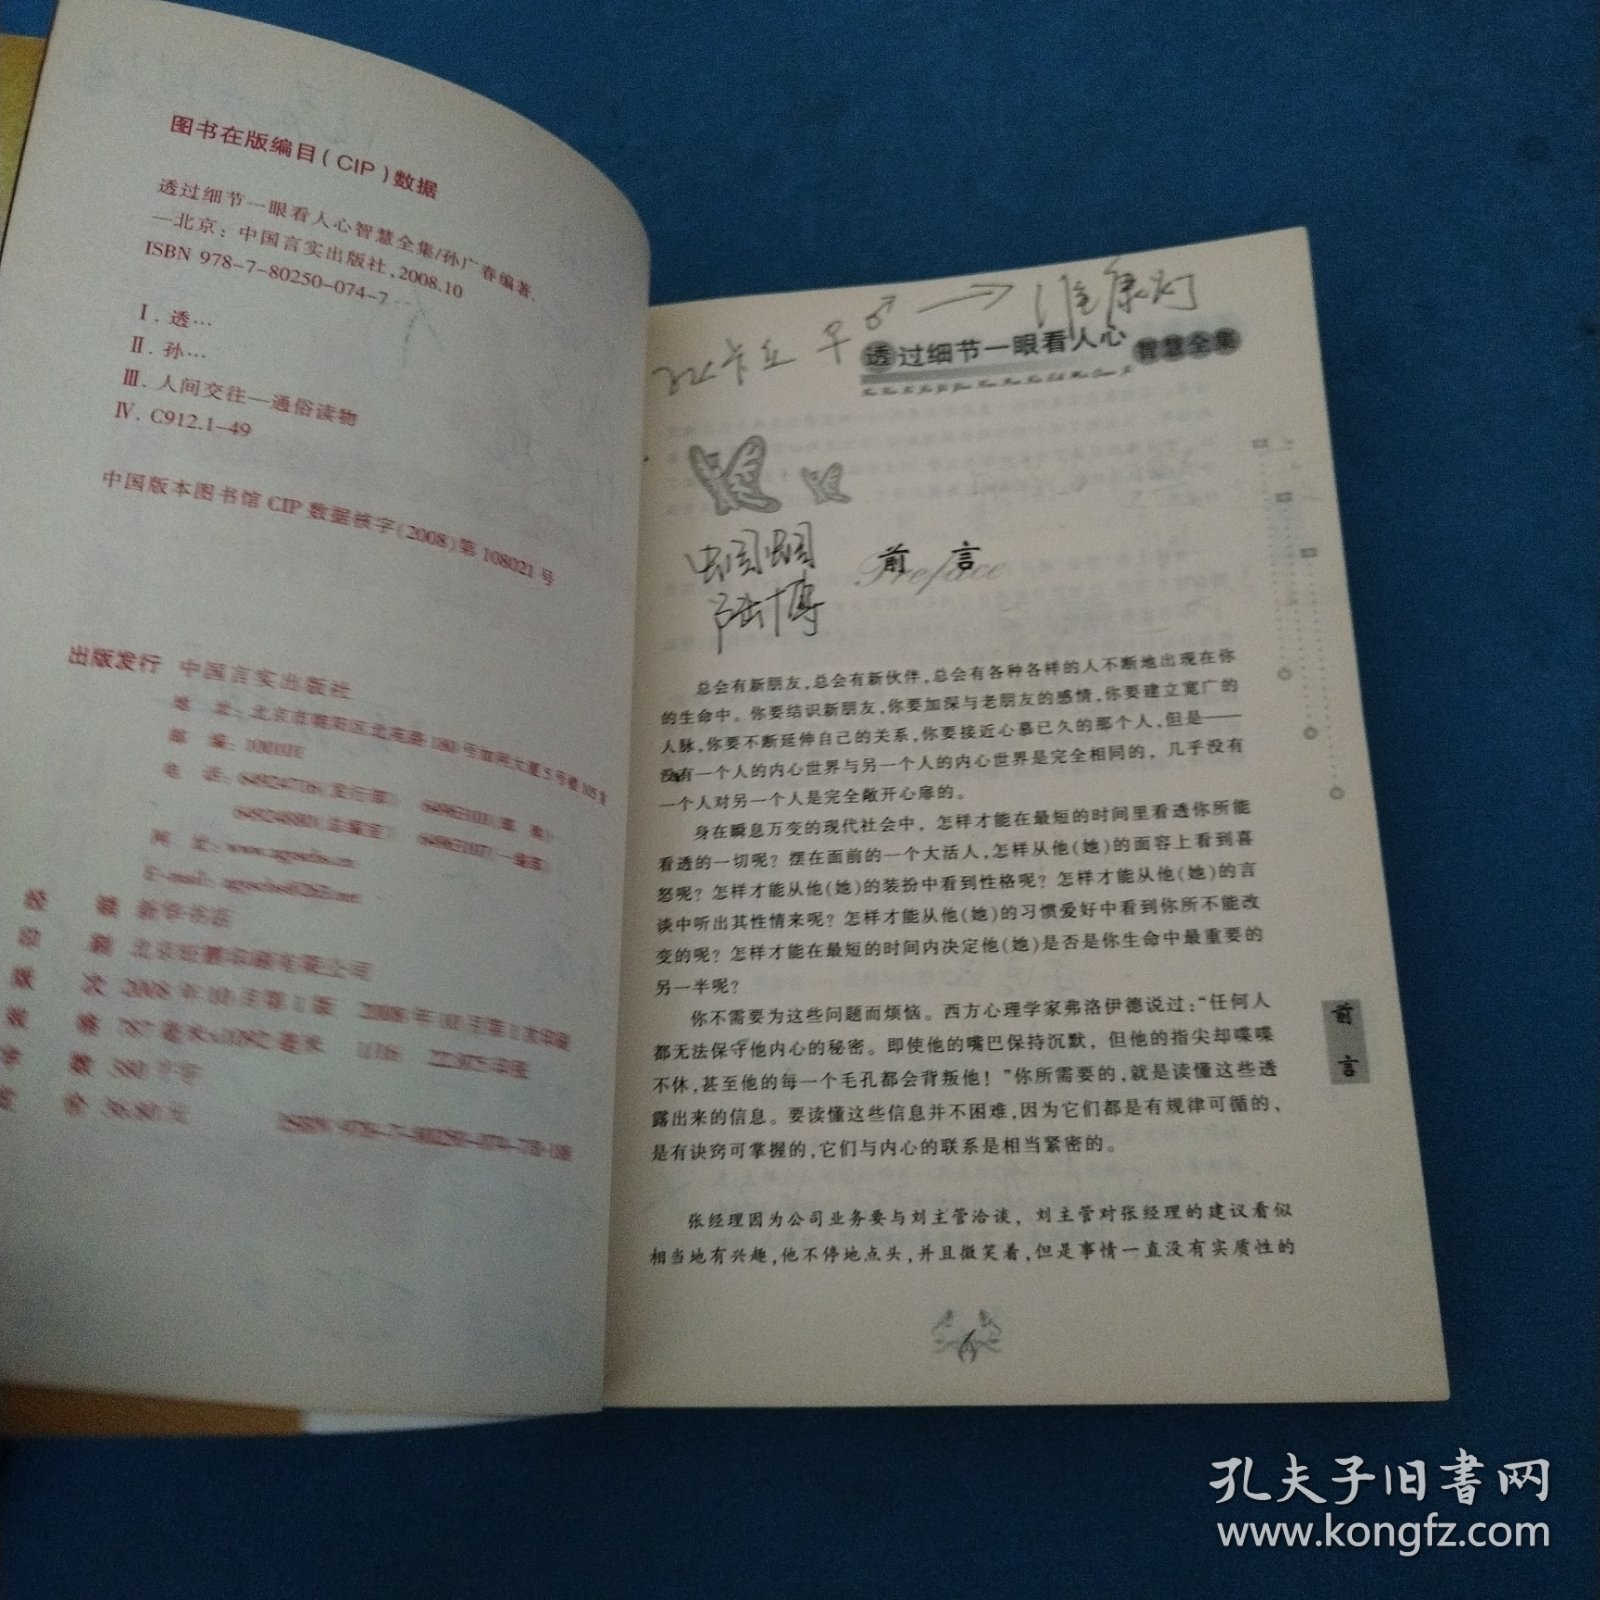 图书在版编目(CIP)数据
透过细节一眼看人心智慧全集/孙广春编著.
—北京：中国言实出版社,2008.10
ISBN 978-7-80250-074-7
Ⅰ. 透…
Ⅱ. 孙…
Ⅲ. 人间交往—通俗读物
Ⅳ. C912.1-49
中国版本图书馆 CIP 数据核字(2008)第 108021 号
出版发行 中国言实出版社
地 址：北京市朝阳区北苑路 180 号加利大厦 5 号楼 105 室
邮 编：100101
电 话：64924716(发行部)
经 销 新华书店
版 次 2008 年 10 月第 1 版 2008 年 10 月第 1 次印刷
787 毫米×1092 毫米 1/16 22.875 印张
字 数 380 千字
定 价 36.80 元 ISBN 978-7-80250-074-7
透过细节一眼看人心
智慧全集
前言
Preface
总会有新朋友,总会有新伙伴,总会有各种各样的人不断地出现在你
的生命中。你要结识新朋友,你要加深与老朋友的感情,你要建立宽广的
人脉,你要不断延伸自己的关系,你要接近心慕已久的那个人,但是——
没有一个人的内心世界与另一个人的内心世界是完全相同的，几乎没有
一个人对另一个人是完全敞开心扉的。
身在瞬息万变的现代社会中，怎样才能在最短的时间里看透你所能
看透的一切呢？摆在面前的一个大活人,怎样从他(她)的面容上看到喜
怒呢？怎样才能从他(她)的装扮中看到性格呢？怎样才能从他(她)的言
谈中听出其性情来呢？怎样才能从他(她)的习惯爱好中看到你所不能改
变的呢？怎样才能在最短的时间内决定他(她)是否是你生命中最重要的
另一半呢？
你不需要为这些问题而烦恼。西方心理学家弗洛伊德说过：“任何人
都无法保守他内心的秘密。即使他的嘴巴保持沉默，但他的指尖却喋喋
不休,甚至他的每一个毛孔都会背叛他！”你所需要的,就是读懂这些透
露出来的信息。要读懂这些信息并不困难,因为它们都是有规律可循的,
是有诀窍可掌握的,它们与内心的联系是相当紧密的。
张经理因为公司业务要与刘主管洽谈，刘主管对张经理的建议看似
相当地有兴趣,他不停地点头,并且微笑着,但是事情一直没有实质性的
前
言
孔夫子旧书网
www.kongfz.com